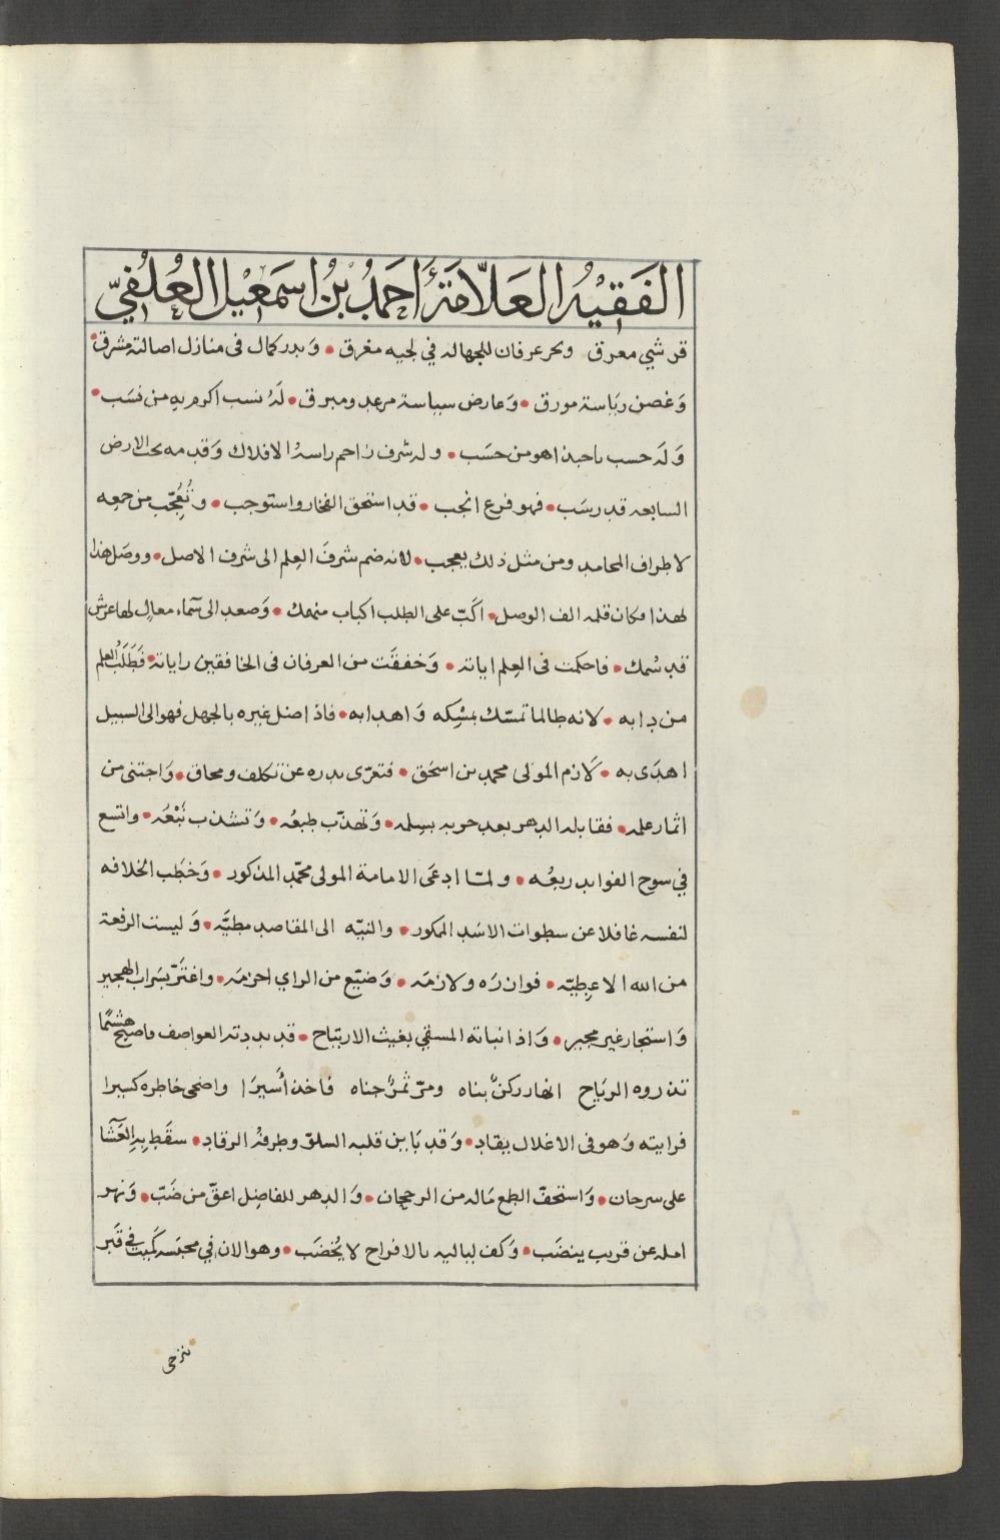 الفَقِيْهُ العَلاّمَةُ اَحمَدُ بْنُ اسمَعِيْل العُلُفيّ
قرشي معرق وبحر عرفان للجهاله في لجيه مغرق • وَبدر كمال فى منازل اصالته مشرق •
وَغصن ريَاسة مورق • وَعارض سياسة مرعد ومبرق • لَهُ نسب اكرم بهِ من نسَب •
وَلَه حسب ياحبذا هو من حسَب • وله شرف زاحم راسهُ الافلاك وَقدمه تحت الارض
السابعه قد رسَب • فهو فرع انجب • قد استحق الفخار واستوجب • وتُعُجّب من جمعِه
لاطراف المحامد ومن مثل ذلك يعجب • لانه ضم شرفَ العِلم الى شرف الاصل • ووصَل هذا
لهذا مكان قلمه الف الوصل • اكَبّ على الطلب اكباب منهمك • وَصعد الى سَماء معالٍ لها عرش
قد سُمك • فاحكمت فى العِلم اياته • وَخفقَت من العرفان فى الخافقين راياته • فَطَلَبُ العِلم
من دابه • لانه طالما تمسّك بمسِكه وَاهدابه • فاذا ضل غيره بالجهل فهو الى السبيل
اهدَى به • لَازم المولى محمد بن اسحٰق • فتعرّى بدره عن تكلف ومحاق • وَاجتنى من
اثمار علمه • فقابله الدهر بعد حربه بسِلمه • وَتهذّب طبعُه • وَتشذب نَبْعُه • واتسع
في سوح الفوايد ربعُه • ولمّا ادعَى الامامة المولى محمّد المذكور • وَخطب الخلافه
لنفسه غافلا عن سطوات الاسَد المكور • والنيّه الى المقاصد مطيَّه • وَليست الرفعة
من الله الا عِطيّه • فوازرَه ولازمَه • وَضيّع من الراي احزمَه • واغترّ بسَراب الهجير
وَاستجار غير مجير • وَاذا نباته المسقي بغيث الارتياح • قد بددته العواصف فاصبح هشيمًا
تذروه الريَاح انهار ركنُ بناه ومرّ ثمرُ جناه فاخذ أسيرًا واضحى خاطره كسيرا
فرايته وَهو فى الاغلال يقاد • وَقد بَاين قلبه السلوّ وطرفهُ الرقاد • سقَط بِهِ العَشَا
على سرحان • وَاستخفّ الطبع مَاله من الرجحان • وَالدهر للفاضِل اعقّ من ضَبّ • وَنهر
امله عن قريب ينضَب • وَكف لياليه بالافراح لا يُخضَب • وهو الان في محبَسه كميت في قَبر